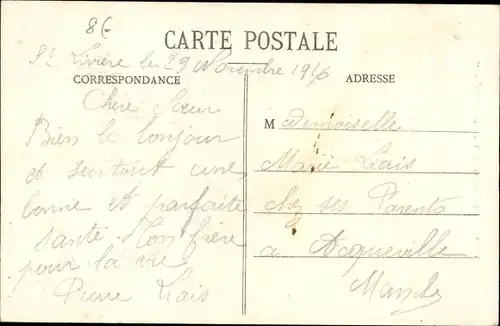 8€
CARTE POSTALE
St Livière le 29 Novembre 1916
CORRESPONDANCE
ADRESSE
Chère Sœur
Bien le bonjour
et surtout une
bonne et parfaite
santé. Ton frère
pour la vie
Pierre Liais
Mademoiselle
Marie Liais
chez ses Parents
a Acqueville
Manche